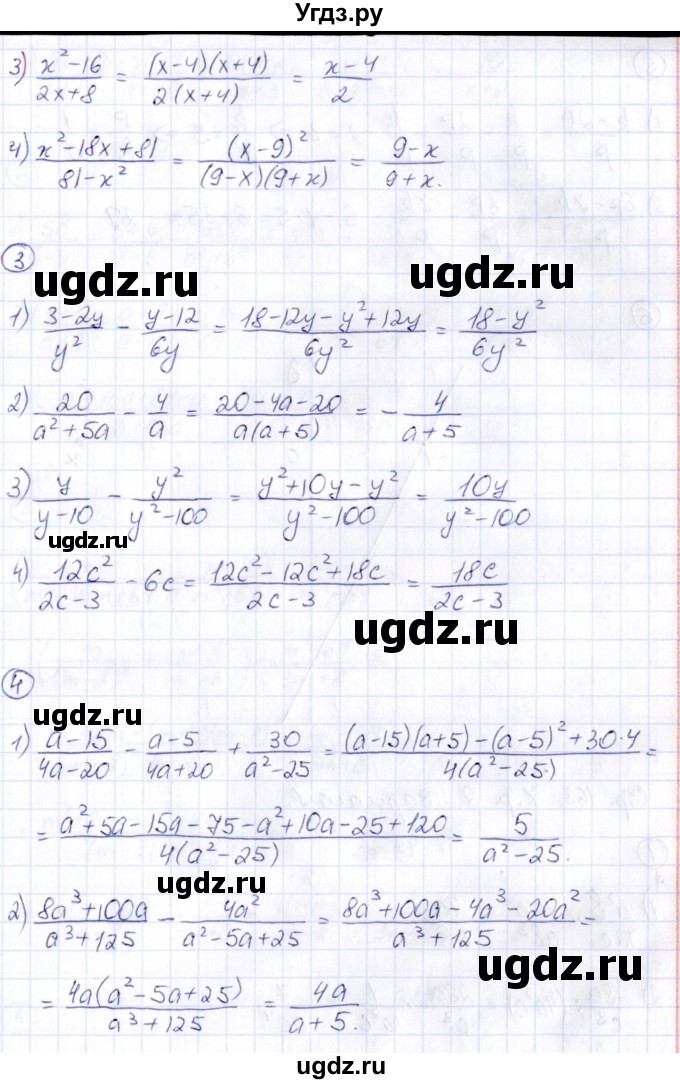 Угдз.ру
3) (x²-16)/(2x+8) = ((x-4)(x+4))/(2(x+4)) = (x-4)/2
4) (x²-18x+81)/(81-x²) = (x-9)²/((9-x)(9+x)) = (9-x)/(9+x).
3
ugdz.ru ugdz.ru
1) (3-2y)/y² - (y-12)/(6y) = (18-12y-y²+12y)/(6y²) = (18-y²)/(6y²)
2) 20/(a²+5a) - 4/a = (20-4a-20)/(a(a+5)) = -4/(a+5)
3) y/(y-10) - y²/(y²-100) = (y²+10y-y²)/(y²-100) = 10y/(y²-100)
ugdz.ru
4) 12c²/(2c-3) - 6c = (12c²-12c²+18c)/(2c-3) = 18c/(2c-3)
ugdz.ru
4
ugdz.ru
1) (a-15)/(4a-20) - (a-5)/(4a+20) + 30/(a²-25) = ((a-15)(a+5)-(a-5)²+30·4)/(4(a²-25)) =
= (a²+5a-15a-75-a²+10a-25+120)/(4(a²-25)) = 5/(a²-25).
ugdz.ru
2) (8a³+100a)/(a³+125) - 4a²/(a²-5a+25) = (8a³+100a-4a³-20a²)/(a³+125) =
ugdz.ru
= (4a(a²-5a+25))/(a³+125) = 4a/(a+5).
ugdz.ru